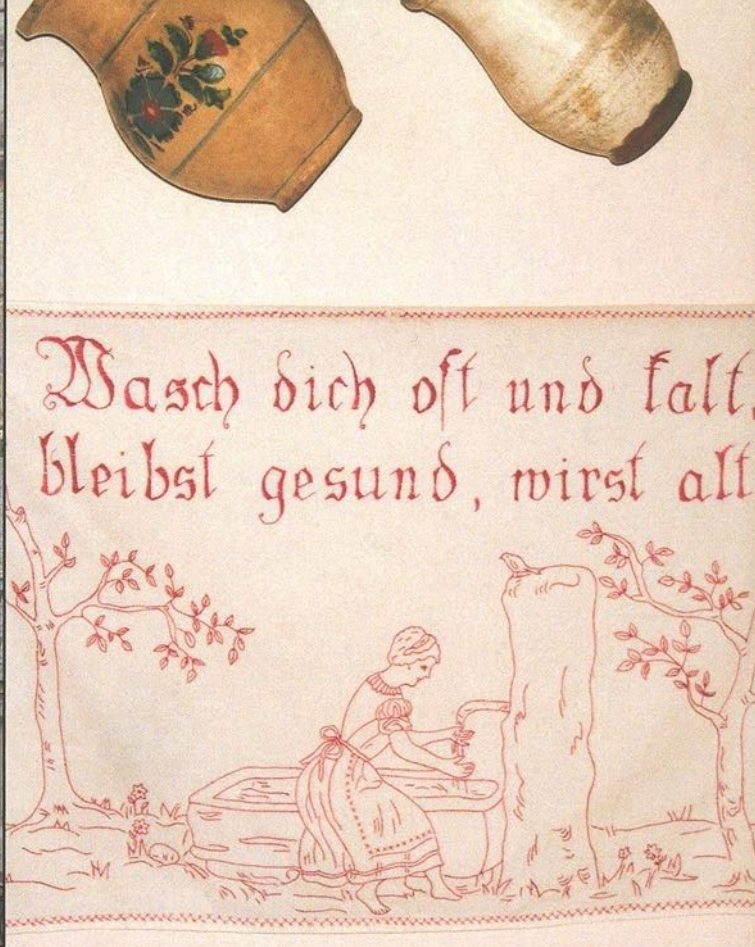 Wasch dich oft und kalt
bleibst gesund, wirst alt